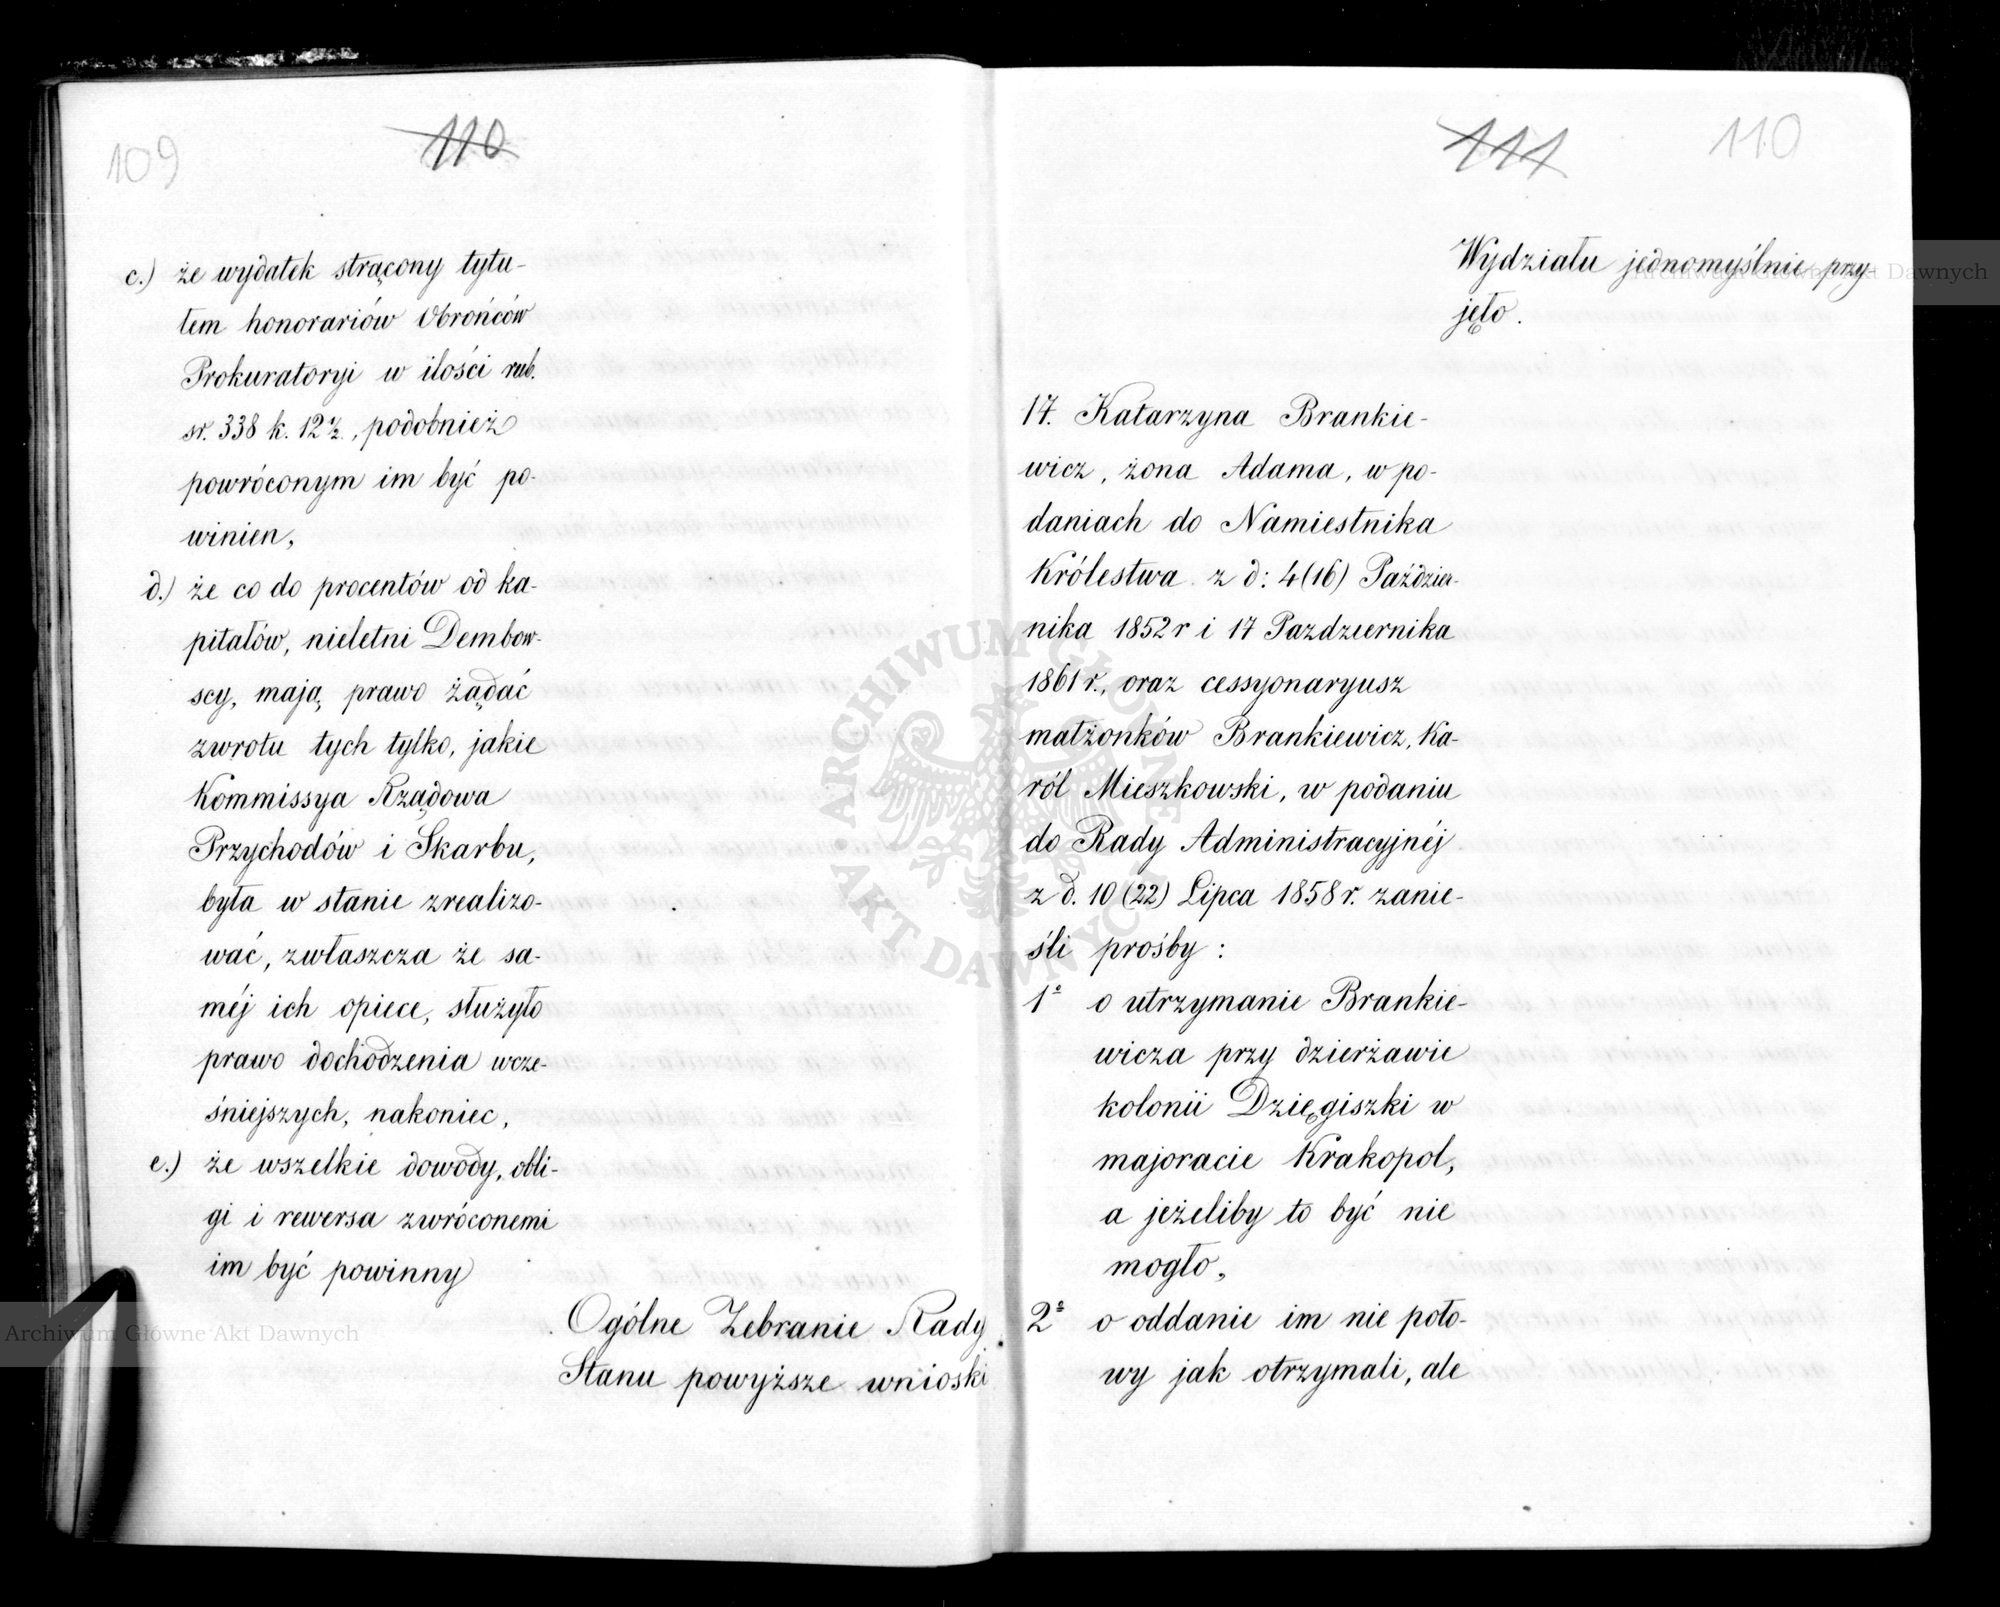 109
110
c.) że wydatek strącony tytu-
łem honorariów Obrońców
Prokuratoryi w ilości rub.
sr. 338 k. 12½, podobnież
powróconym im być po-
winien,
d.) że co do procentów od ka-
pitałów, nieletni Dembow-
scy, mają prawo żądać
zwrotu tych tylko, jakie
Kommissya Rządowa
Przychodów i Skarbu,
była w stanie zrealizo-
wać, zwłaszcza że sa-
méj ich opiece, służyło
prawo dochodzenia wcze-
śniejszych, nakoniec,
e.) że wszelkie dowody, obli-
gi i rewersa zwróconemi
im być powinny
Ogólne Zebranie Rady
Stanu powyższe wnioski
111
110
Wydziału jednomyślnie przy-
jęło.
17. Katarzyna Brankie-
wicz, żona Adama, w po-
daniach do Namiestnika
Królestwa z d: 4 (16) Paździer-
nika 1852 r i 17 Pazdziernika
1861 r., oraz cessyonaryusz
małżonków Brankiewicz, Ka-
ról Mieszkowski, w podaniu
do Rady Administracyjnéj
z d. 10 (22) Lipca 1858 r. zanie-
śli prośby:
1º o utrzymanie Brankie-
wicza przy dzierżawie
kolonii Dzięgiszki w
majoracie Krakopol,
a jeżeliby to być nie
mogło,
2º o oddanie im nie poło-
wy jak otrzymali, ale
Archiwum Główne Akt Dawnych
Archiwum Główne Akt Dawnych
ARCHIWUM GŁÓWNE AKT DAWNYCH